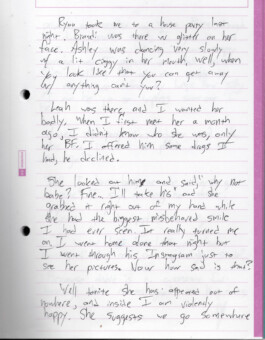 Ryan took me to a house party last
night. Brandi was there w/ glitter on her
face. Ashley was dancing very slowly
w/ a lit ciggy in her mouth, well, when
you look like that you can get away
w/ anything can't you?
Leah was there, and I wanted her
badly. When I first met her a month
ago, I didn't know who she was, only
her BF. I offered him some drugs I
had, he declined.
She looked at him and said, "why not
babe? Fine. I'll take his" and she
grabbed it right out of my hand while
she had the biggest misbehaved smile
I had ever seen. It really turned me
on. I went home alone that night but
I went through his Instagram just to
see her pictures. Now how sad is that?
Well tonite she has appeared out of
nowhere, and inside I am violently
happy. She suggests we go somewhere